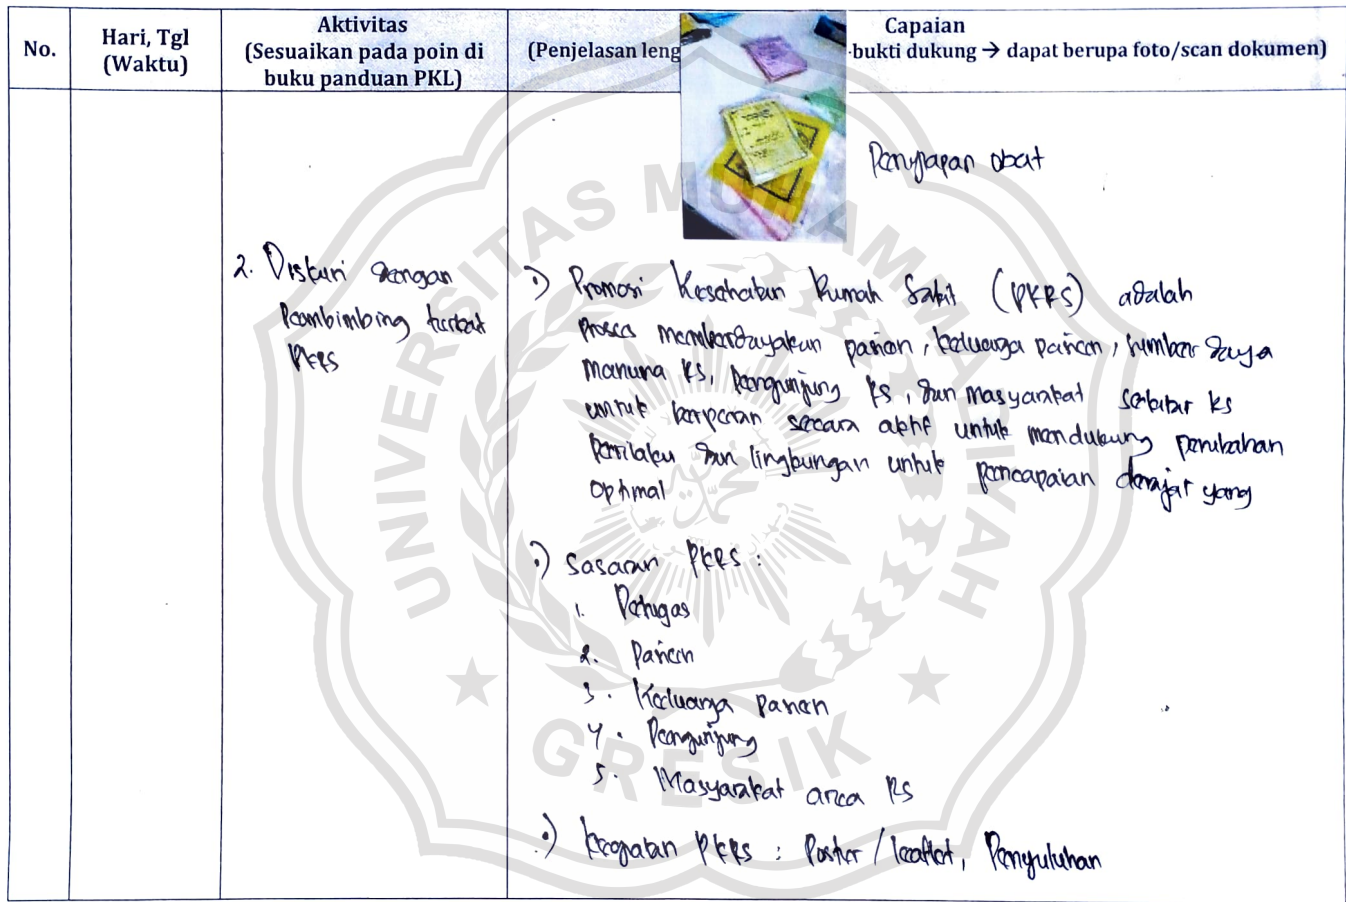 No.
Hari, Tgl
(Waktu)
Aktivitas
(Sesuaikan pada poin di
buku panduan PKL)
Capaian
(Penjelasan leng
-bukti dukung → dapat berupa foto/scan dokumen)
Penyiapan obat
2. Diskusi dengan
Pembimbing terkait
PKRS
•) Promosi Kesehatan Rumah Sakit (PKRS) adalah
proses memberdayakan pasien, keluarga pasien, sumber daya
manusia RS, pengunjung RS, dan masyarakat sekitar RS
untuk berperan secara aktif untuk mendukung perubahan
perilaku dan lingkungan untuk pencapaian derajat yang
optimal
•) Sasaran PKRS :
1. Petugas
2. Pasien
3. Keluarga Pasien
4. Pengunjung
5. Masyarakat area RS
•) Kegiatan PKRS : Poster / leaflet, Penyuluhan
UNIVERSITAS MUHAMMADIYAH
GRESIK